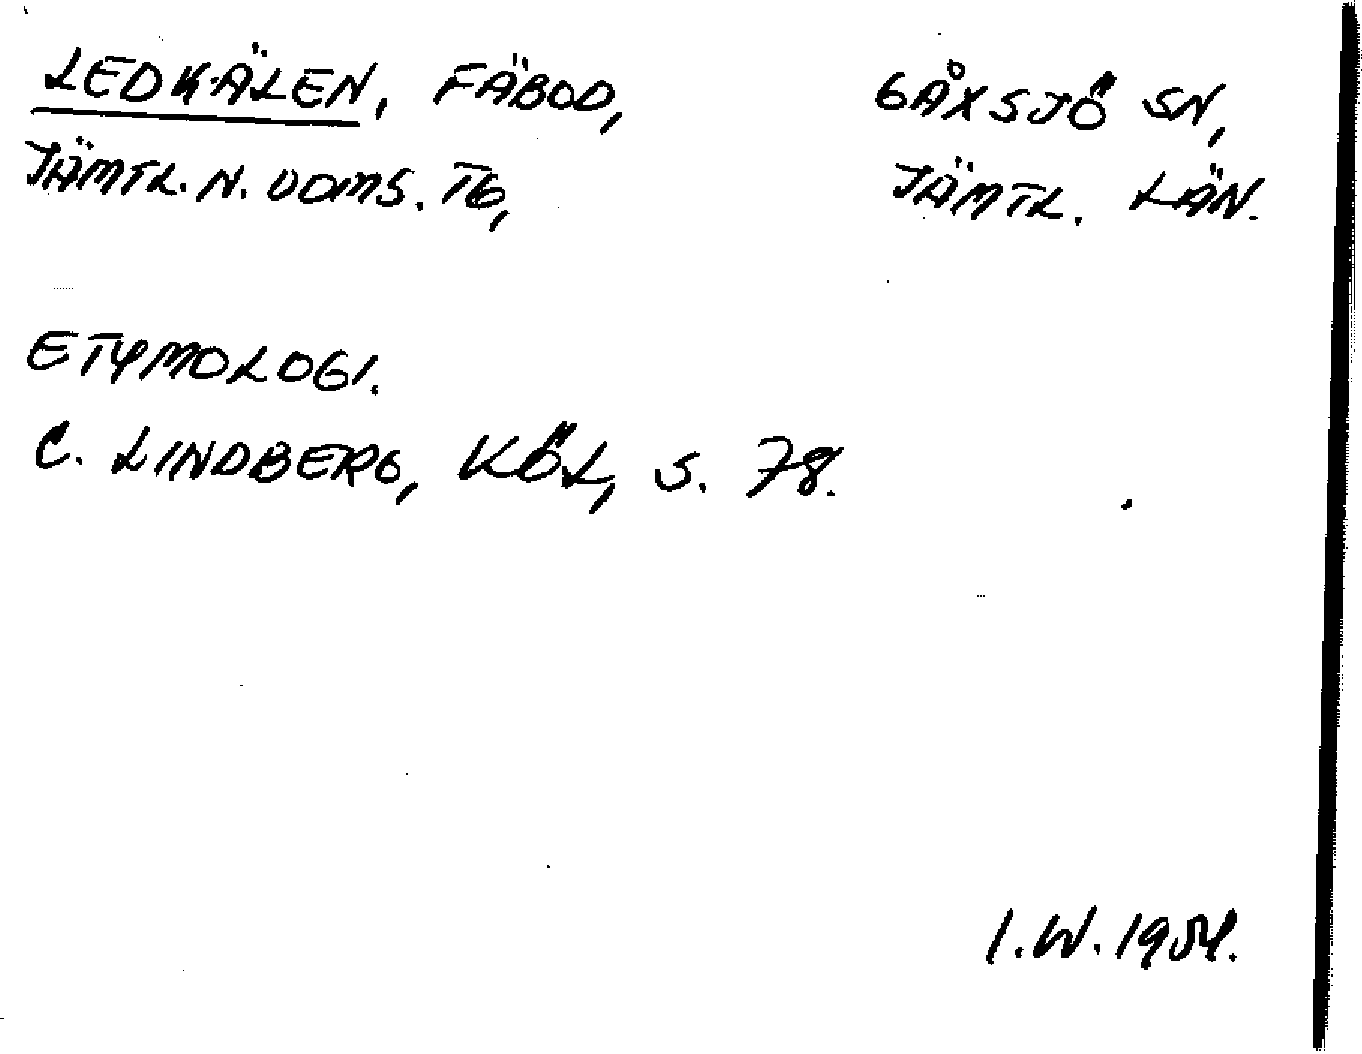 LEDKÄLEN, FÄBOD, GÅXSJÖ SN,
JÄMTL. N. DOMS. TG, JÄMTL. LÄN.
ETYMOLOGI.
C. LINDBERG, KÖL, S. 78.
I.W. 1954.